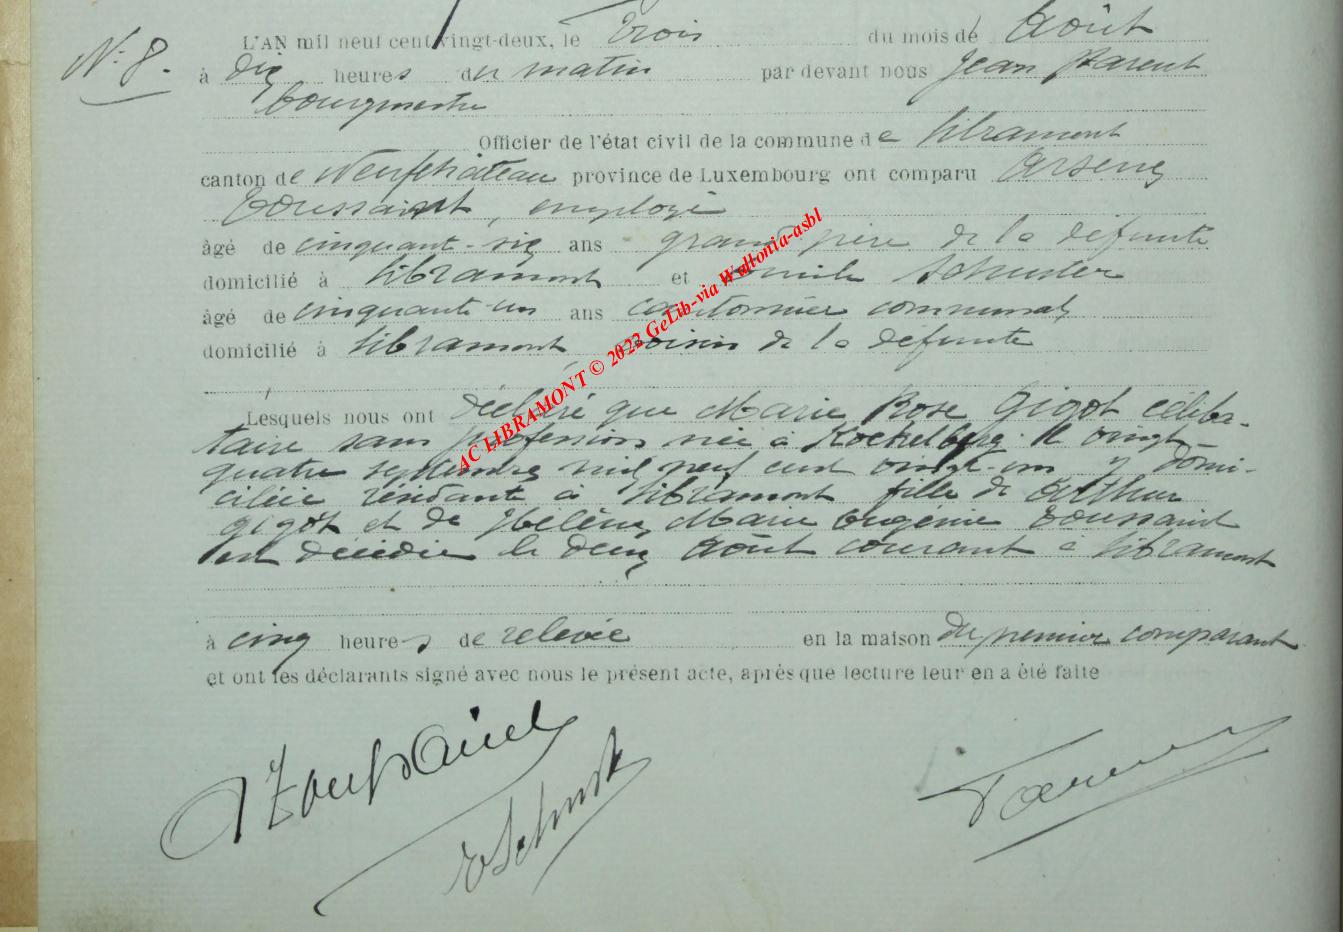 N° 8.
L'AN mil neuf cent vingt-deux, le Trois du mois de Août
à dix heures du matin par devant nous Jean Parent
bourgmestre
Officier de l'état civil de la commune de Libramont
canton de Neufchâteau province de Luxembourg ont comparu Arsène
Toussaint, employé
âgé de cinquante-six ans grand père de la défunte
domicilié à Libramont et Emile Schuster
âgé de cinquante-un ans cantonnier communal
domicilié à Libramont voisin de la défunte
Lesquels nous ont déclaré que Marie Rose Gigot céliba-
taire sans profession née à Koekelberg le vingt-
quatre septembre mil neuf cent vingt-un y domi-
ciliée résidante à Libramont fille de Arthur
Gigot et de Hélène Marie Eugénie Toussaint
est décédée le deux Août courant à Libramont
à cinq heures de relevée en la maison du premier comparant
et ont les déclarants signé avec nous le présent acte, après que lecture leur en a été faite
AToussaint
ESchuster
Parent
AC LIBRAMONT © 2022 GeLib-via Wallonia-asbl